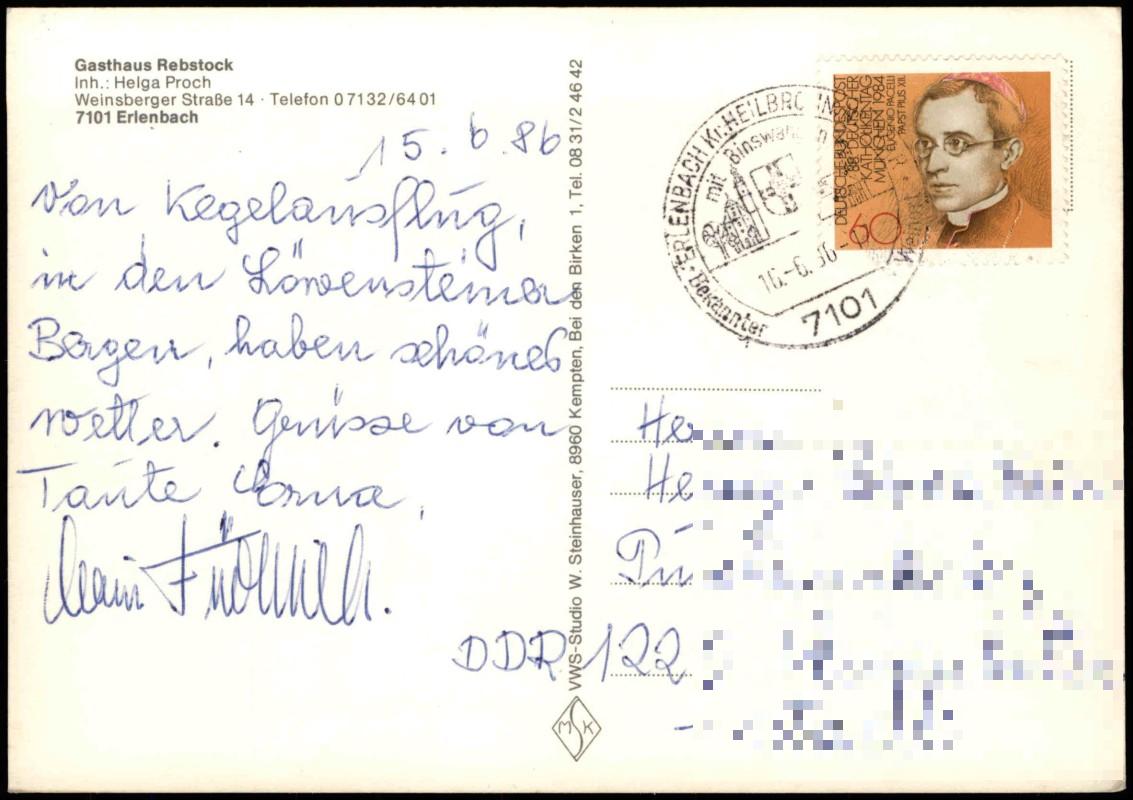 Gasthaus Rebstock
Inh.: Helga Proch
Weinsberger Straße 14 · Telefon 0 71 32 / 64 01
7101 Erlenbach
15.6.86
Von Kegelausflug,
in den Löwensteiner
Bergen, haben schönes
wetter. Grüsse von
Tante Erna,
VWS-Studio W. Steinhauser, 8960 Kempten, Bei den Birken 1, Tel. 08 31/2 46 42
MSK
ERLENBACH Kr. HEILBRONN
mit Binswangen
16.-6.86
Bekannter
7101
DEUTSCHE BUNDESPOST
88. DEUTSCHER
KATHOLIKENTAG
MÜNCHEN 1984
EUGENIO PACELLI
PAPST PIUS XII.
60
DDR 122